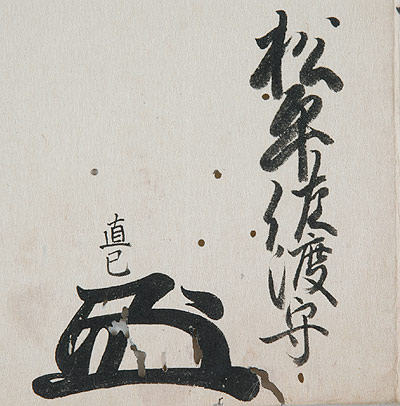 松平佐渡守
直巳